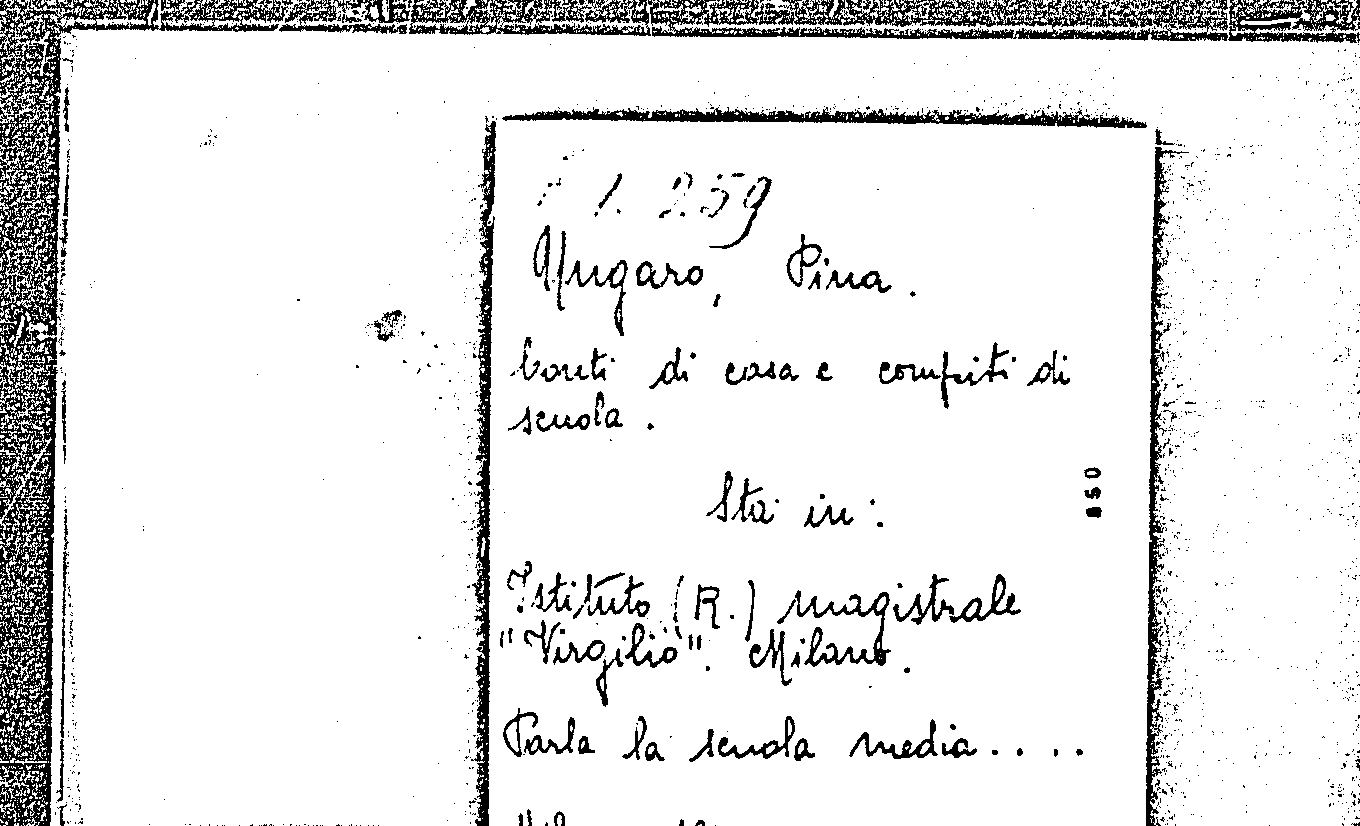 1. 259
Ungaro, Pina.
Conti di casa e compiti di
scuola.
Sta in:
850
Istituto (R.) magistrale
"Virgilio". Milano.
Parla la scuola media....